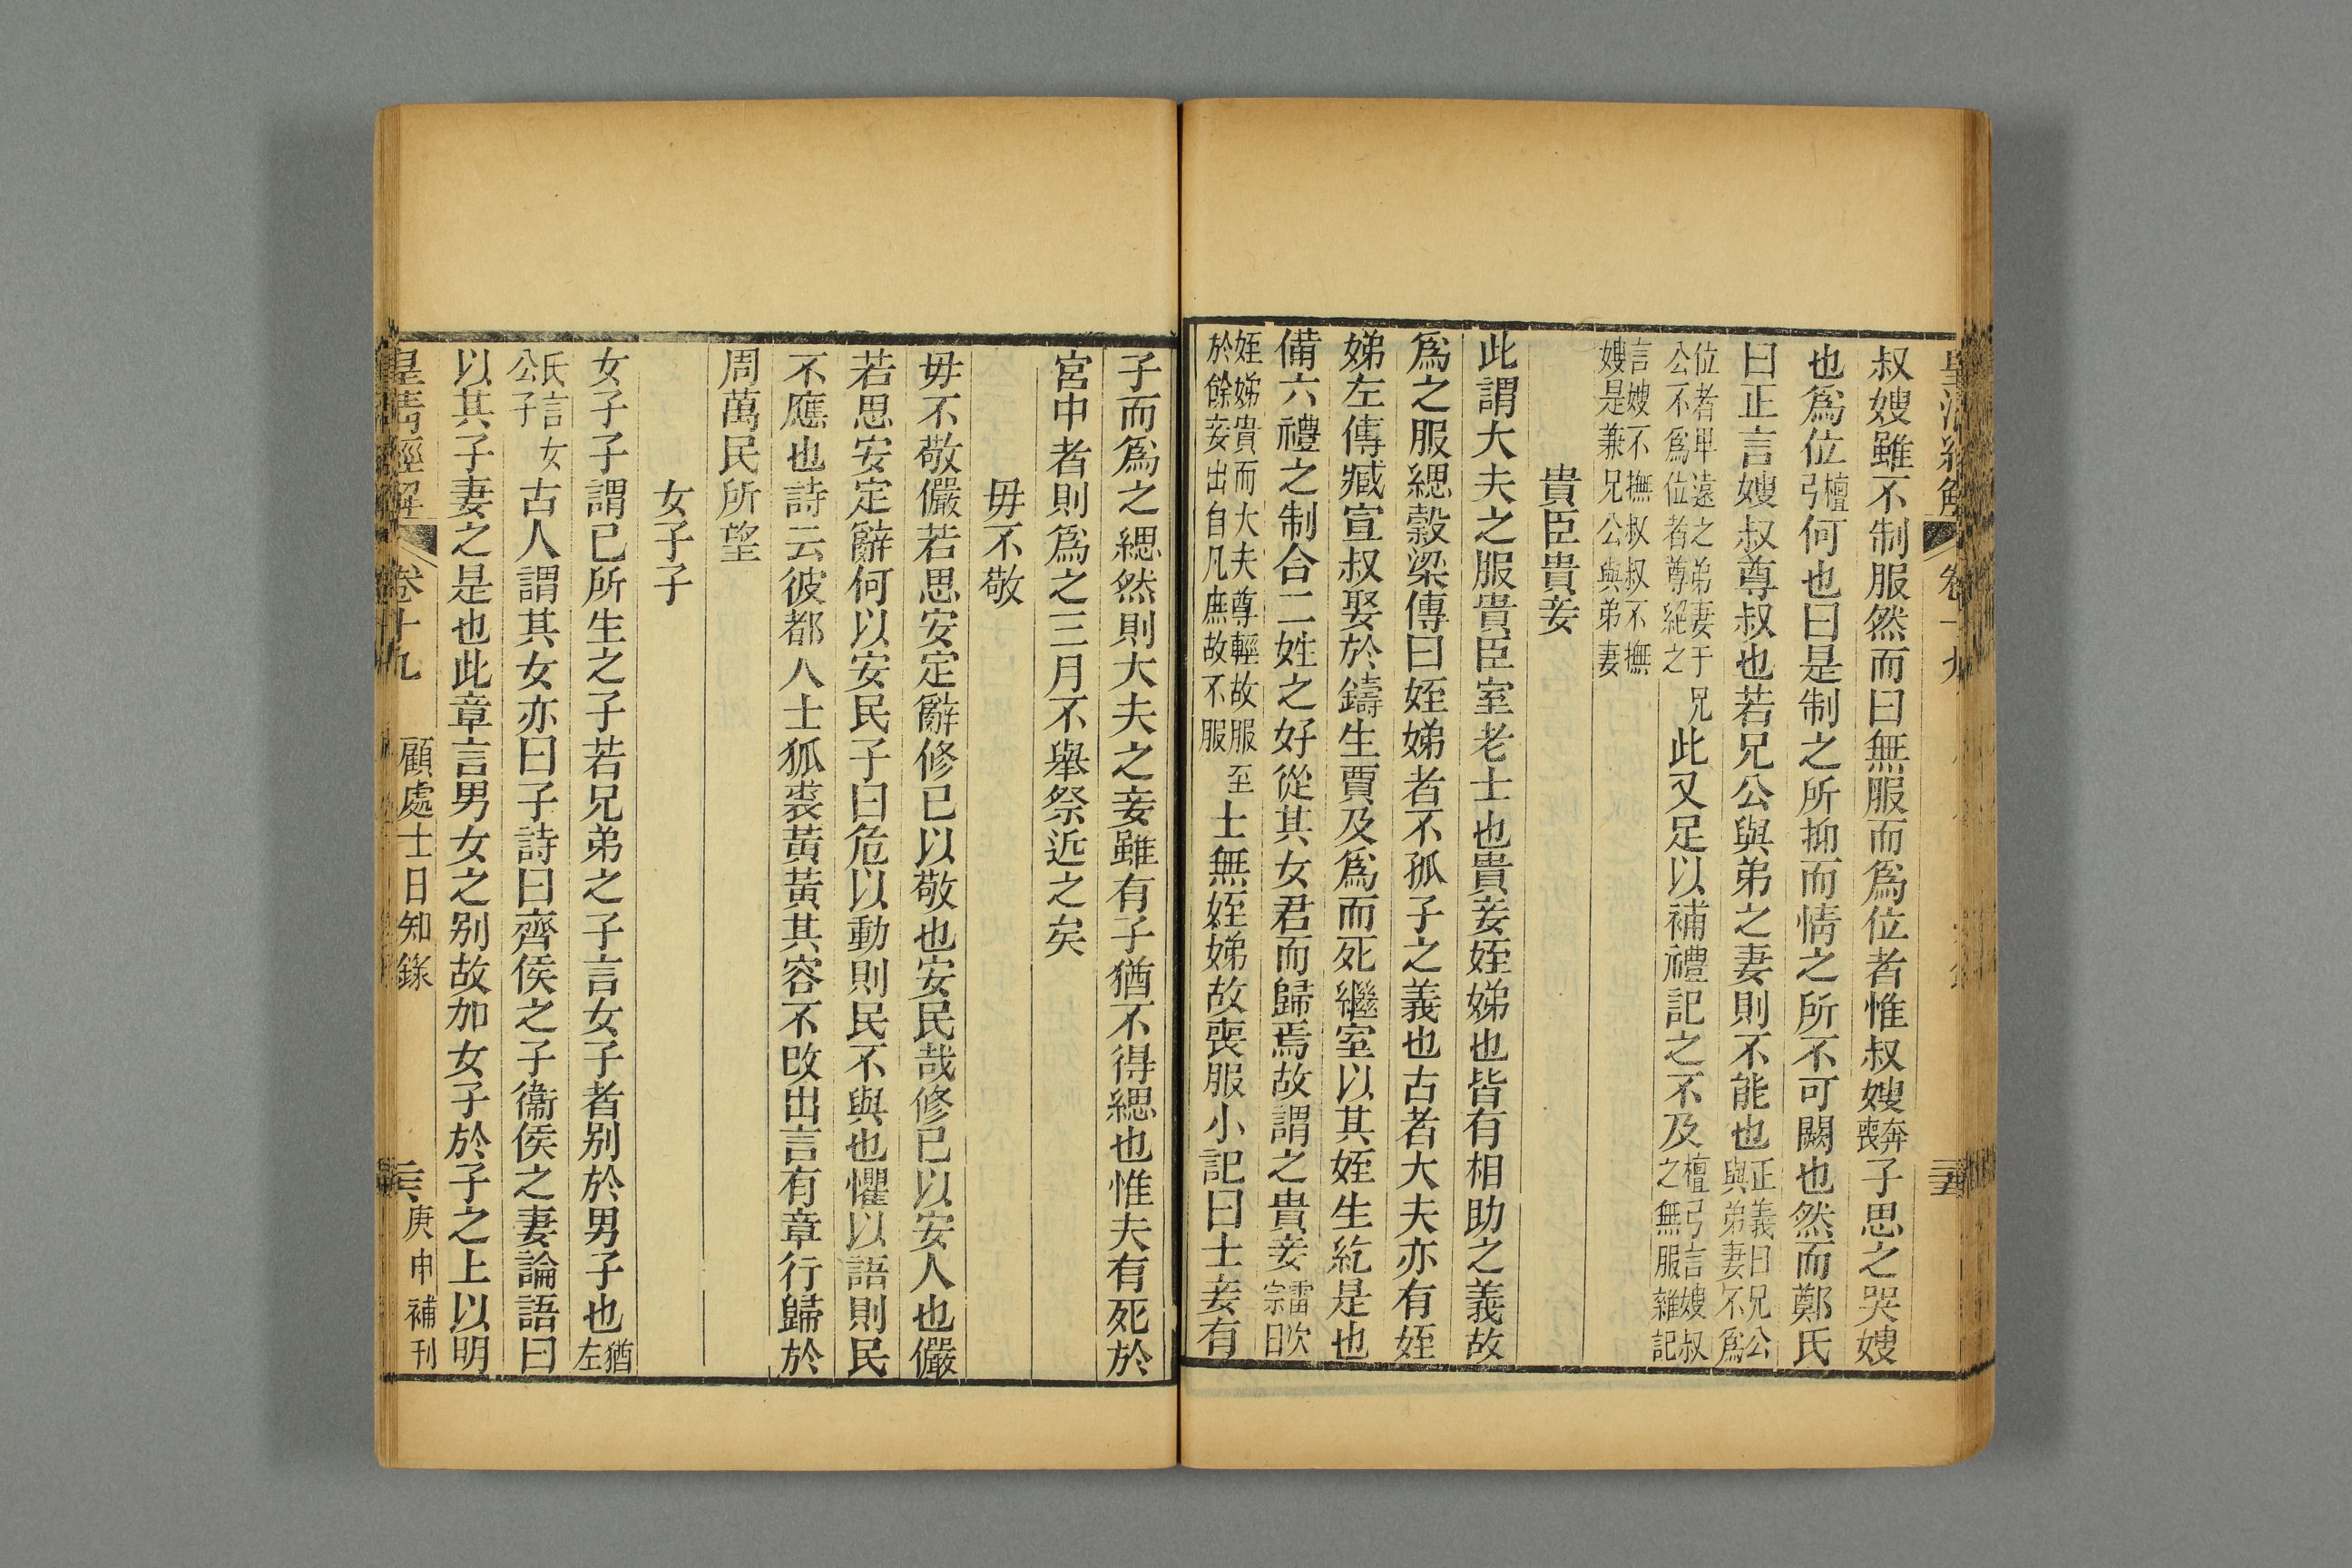 皇清經解 卷十九
叔嫂雖不制服然而曰無服而爲位者惟叔嫂奔喪子思之哭嫂
也爲位檀弓何也曰是制之所抑而情之所不可闕也然而鄭氏
曰正言嫂叔尊叔也若兄公與弟之妻則不能也正義曰兄公與弟妻不爲
位者卑遠之弟妻于兄公不爲位者尊絕之此又足以補禮記之不及檀弓言嫂叔之無服雜記
言嫂不撫叔叔不撫嫂是兼兄公與弟妻
貴臣貴妾
此謂大夫之服貴臣室老士也貴妾姪娣也皆有相助之義故
爲之服緦穀梁傳曰姪娣者不孤子之義也古者大夫亦有姪
娣左傳臧宣叔娶於鑄生賈及爲而死繼室以其姪生紇是也
備六禮之制合二姓之好從其女君而歸焉故謂之貴妾雷次宗曰
姪娣貴而大夫尊輕故服至於餘妾出自凡庶故不服士無姪娣故喪服小記曰士妾有
子而爲之緦然則大夫之妾雖有子猶不得緦也惟夫有死於
宮中者則爲之三月不舉祭近之矣
毋不敬
毋不敬儼若思安定辭修已以敬也安民哉修已以安人也儼
若思安定辭何以安民子曰危以動則民不與也懼以語則民
不應也詩云彼都人士狐裘黃黃其容不改出言有章行歸於
周萬民所望
女子子
女子子謂已所生之子若兄弟之子言女子者別於男子也猶左
氏言女公子古人謂其女亦曰子詩曰齊侯之子衞侯之妻論語曰
以其子妻之是也此章言男女之別故加女子於子之上以明
皇清經解 卷十九 顧處士日知錄 庚申補刊